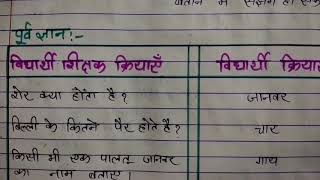 बताने में सक्षम हो सकें
पूर्व ज्ञान:-
विद्यार्थी शिक्षक क्रियाएँ विद्यार्थी क्रिया
शेर क्या होता है? जानवर
बिल्ली के कितने पैर होते है? चार
किसी भी एक पालतू जानवर गाय
का नाम बताएं।